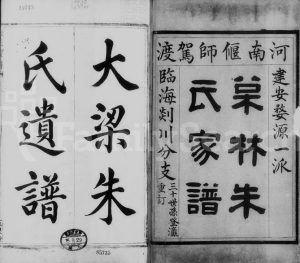 河南偃師駕渡
建安婺源一派
菒林朱
氏家譜
臨海剡川分支
三十世孫登瀛
重訂
大梁朱
氏遺譜